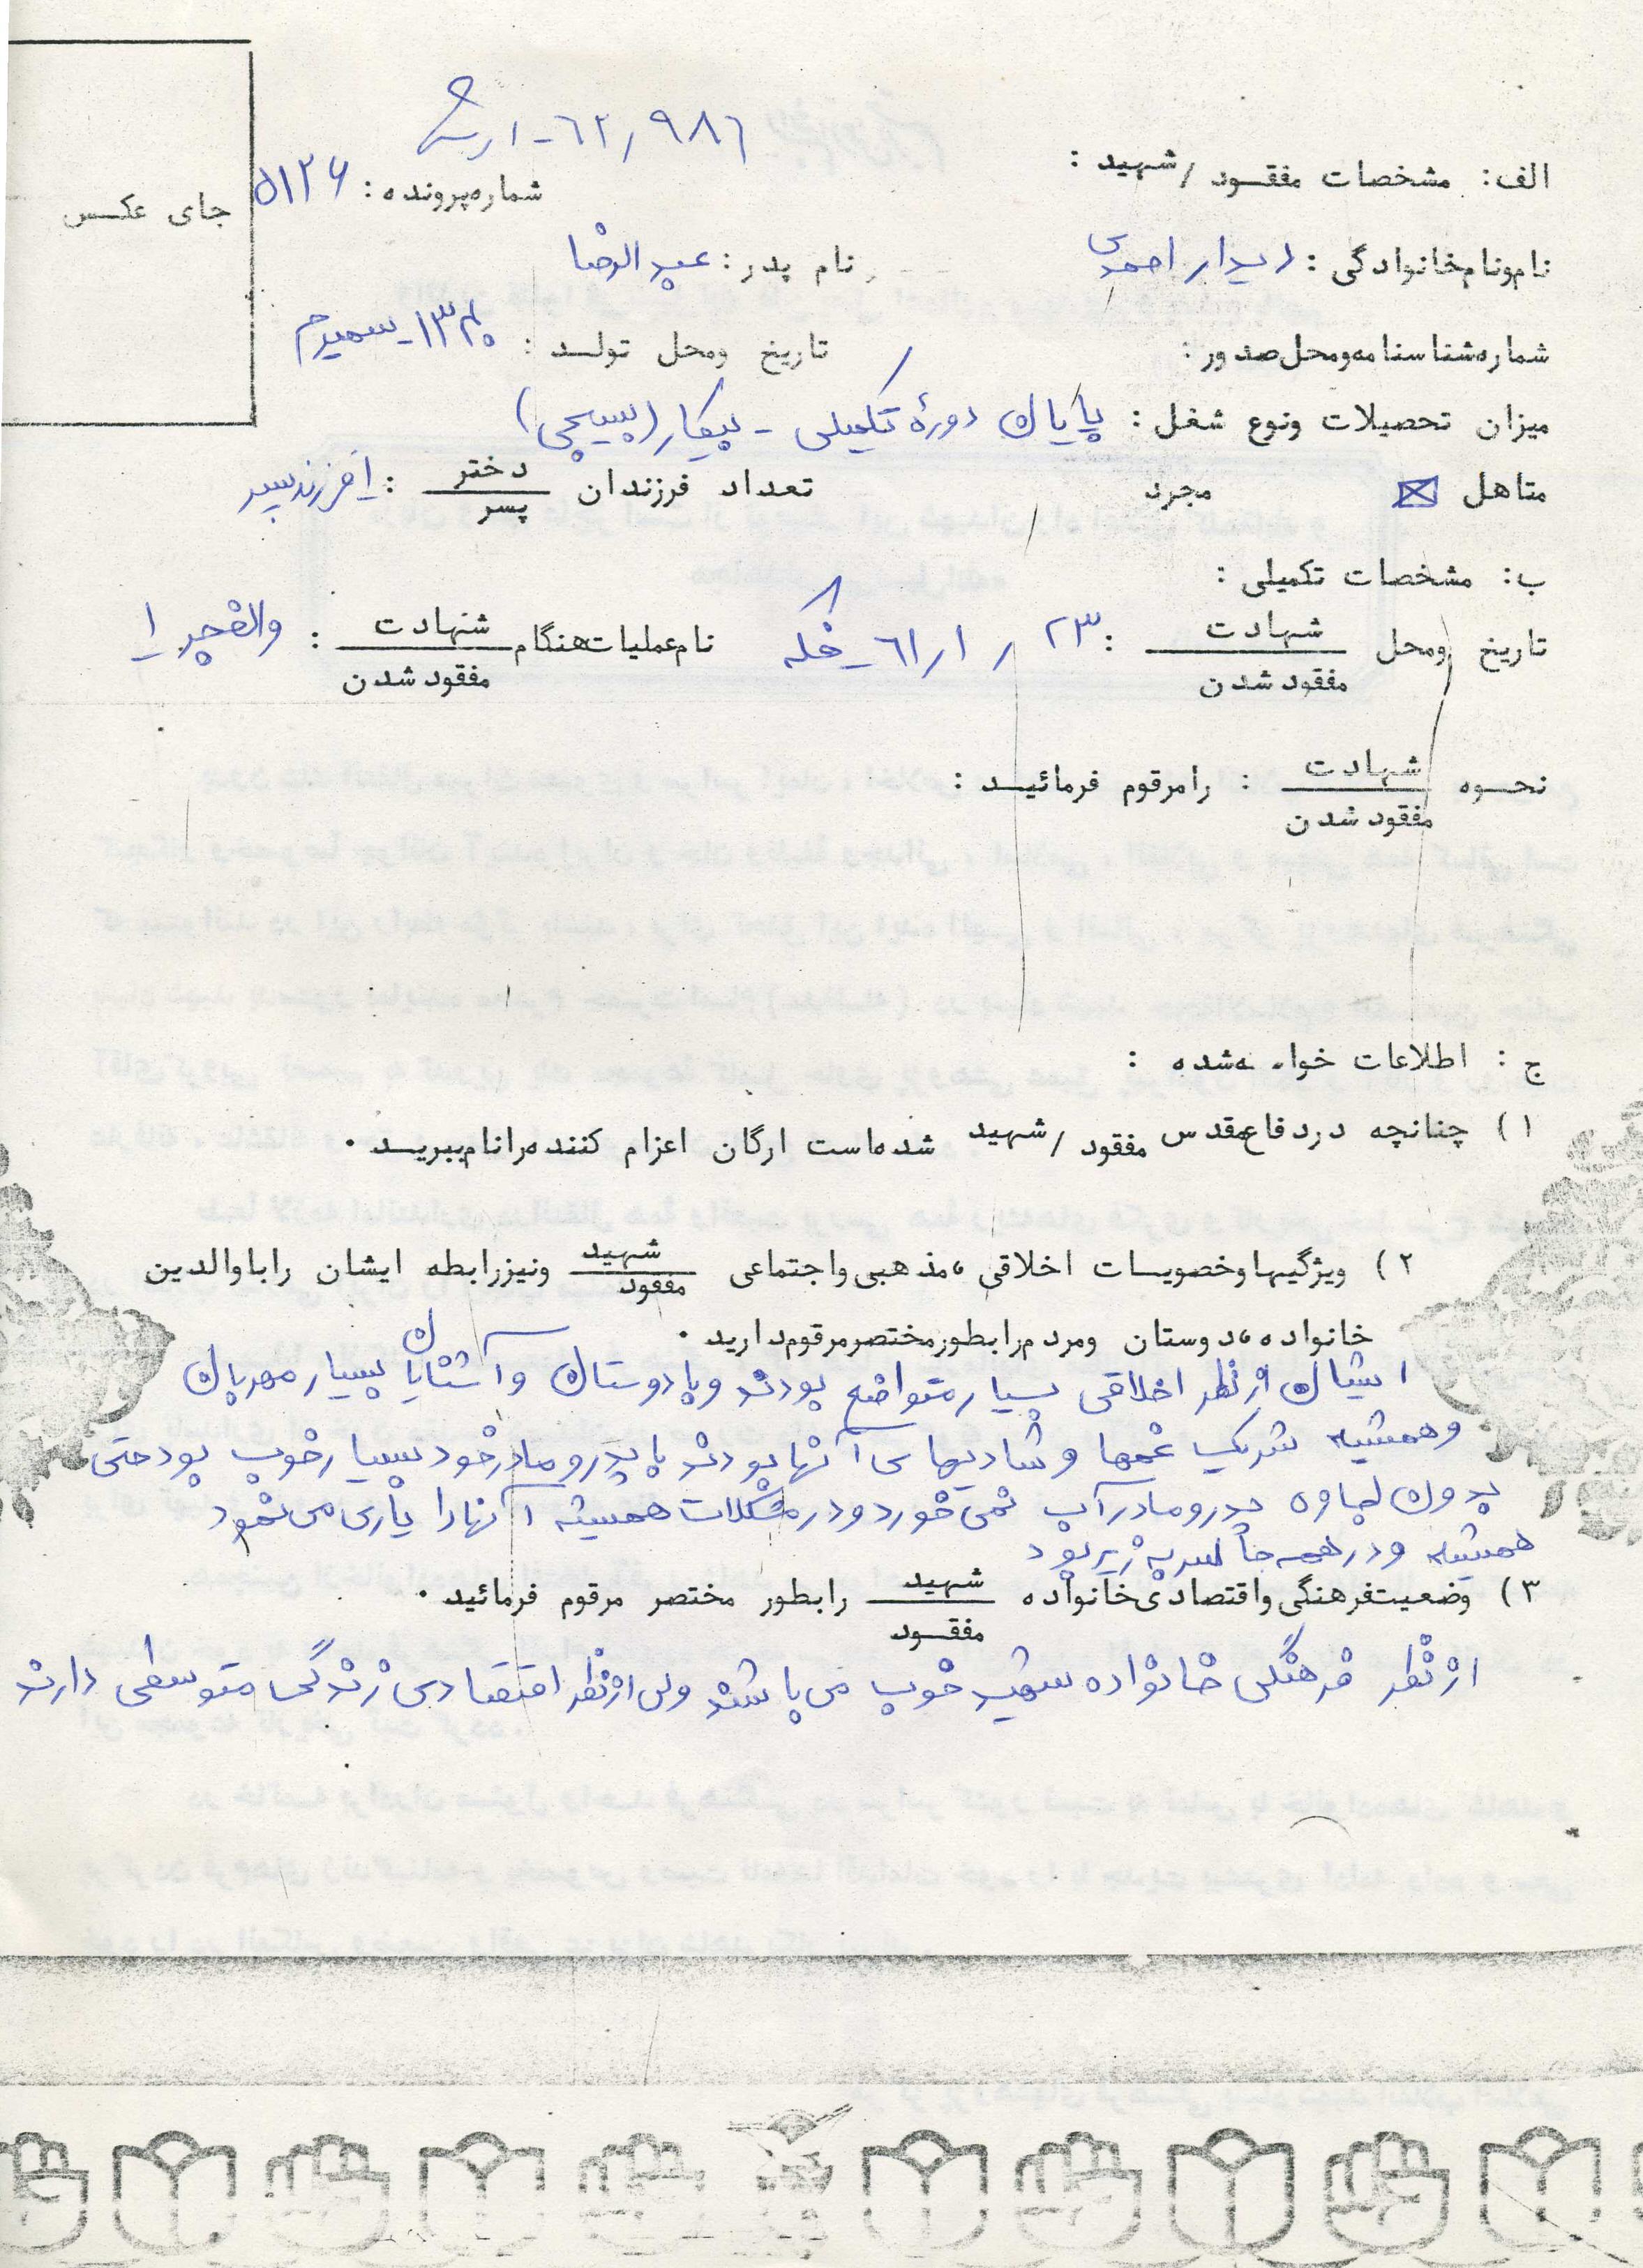 ۶۲٫۹۸۶ - ۱
الف: مشخصات مفقود / شهید :
شماره پرونده : ۵۱۲۶
جای عکس
نام و نام خانوادگی : دیدار احمدی
نام پدر : عبدالرضا
شماره شناسنامه و محل صدور :
تاریخ و محل تولد : ۱۳۴۰ - سمیرم
میزان تحصیلات و نوع شغل : پایان دورهٔ تکمیلی - بیکار (بسیجی)
متاهل ☒ مجرد تعداد فرزندان دختر / پسر : ۱ فرزند پسر
ب: مشخصات تکمیلی :
تاریخ و محل شهادت / مفقود شدن : ۲۳ ر ۱ ر ۶۱ - فکه نام عملیات هنگام شهادت / مفقود شدن : والفجر ۱
نحوه شهادت / مفقود شدن : را مرقوم فرمائید :
ج : اطلاعات شده :
۱ ) چنانچه در دفاع مقدس مفقود / شهید شده است ارگان اعزام کننده را نام ببرید .
۲ ) ویژگیها و خصویسات اخلاقی ، مذهبی و اجتماعی شهید / مفقود و نیز رابطه ایشان را با والدین
خانواده ، دوستان و مردم را بطور مختصر مرقوم دارید .
ایشان از نظر اخلاقی بسیار متواضع بودند و با دوستان و آشنایان بسیار مهربان
و همیشه شریک غمها و شادیهای آنها بودند با پدر و مادر خود بسیار خوب بود حتی
بدون پدر و مادر آب نمی خورد و در مشکلات همیشه آنها را یاری می نمود
همیشه و در همه جا سر به زیر بود
۳ ) وضعیت فرهنگی و اقتصادی خانواده شهید / مفقود را بطور مختصر مرقوم فرمائید .
از نظر فرهنگی خانواده شهید خوب می باشند ولی از نظر اقتصادی زندگی متوسطی دارند